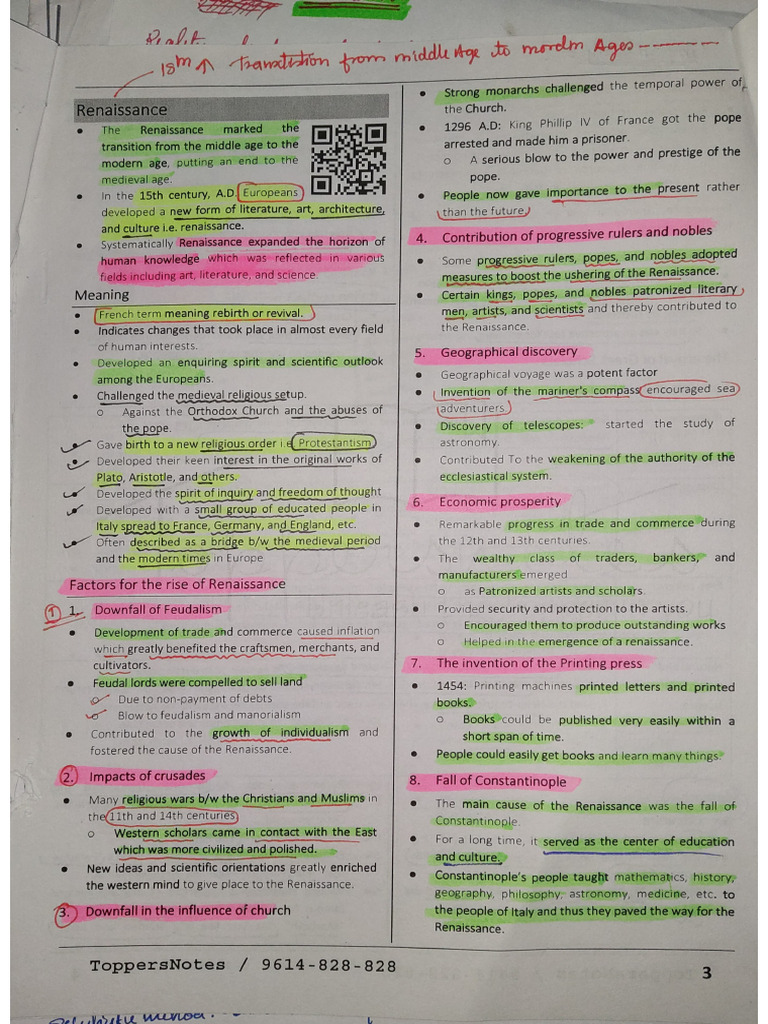 18m ↑ Transition from middle Age to mordrn Ages
Renaissance
• The Renaissance marked the
transition from the middle age to the
modern age, putting an end to the
medieval age.
• In the 15th century, A.D. Europeans
developed a new form of literature, art, architecture,
and culture i.e. renaissance.
• Systematically Renaissance expanded the horizon of
human knowledge which was reflected in various
fields including art, literature, and science.
Meaning
• French term meaning rebirth or revival.
• Indicates changes that took place in almost every field
of human interests.
• Developed an enquiring spirit and scientific outlook
among the Europeans.
• Challenged the medieval religious setup.
o Against the Orthodox Church and the abuses of
the pope.
• Gave birth to a new religious order i.e Protestantism
• Developed their keen interest in the original works of
Plato, Aristotle, and others.
• Developed the spirit of inquiry and freedom of thought
• Developed with a small group of educated people in
Italy spread to France, Germany, and England, etc.
• Often described as a bridge b/w the medieval period
and the modern times in Europe
Factors for the rise of Renaissance
1. Downfall of Feudalism
• Development of trade and commerce caused inflation
which greatly benefited the craftsmen, merchants, and
cultivators.
• Feudal lords were compelled to sell land
o Due to non-payment of debts
o Blow to feudalism and manorialism
• Contributed to the growth of individualism and
fostered the cause of the Renaissance.
2. Impacts of crusades
• Many religious wars b/w the Christians and Muslims in
the 11th and 14th centuries
o Western scholars came in contact with the East
which was more civilized and polished.
• New ideas and scientific orientations greatly enriched
the western mind to give place to the Renaissance.
3. Downfall in the influence of church
• Strong monarchs challenged the temporal power of
the Church.
• 1296 A.D: King Phillip IV of France got the pope
arrested and made him a prisoner.
o A serious blow to the power and prestige of the
pope.
• People now gave importance to the present rather
than the future.
4. Contribution of progressive rulers and nobles
• Some progressive rulers, popes, and nobles adopted
measures to boost the ushering of the Renaissance.
• Certain kings, popes, and nobles patronized literary
men, artists, and scientists and thereby contributed to
the Renaissance.
5. Geographical discovery
• Geographical voyage was a potent factor
• Invention of the mariner's compass encouraged sea
adventurers
• Discovery of telescopes: started the study of
astronomy.
• Contributed To the weakening of the authority of the
ecclesiastical system.
6. Economic prosperity
• Remarkable progress in trade and commerce during
the 12th and 13th centuries.
• The wealthy class of traders, bankers, and
manufacturers emerged
o as Patronized artists and scholars.
• Provided security and protection to the artists.
o Encouraged them to produce outstanding works
o Helped in the emergence of a renaissance.
7. The invention of the Printing press
• 1454: Printing machines printed letters and printed
books.
o Books could be published very easily within a
short span of time.
• People could easily get books and learn many things.
8. Fall of Constantinople
• The main cause of the Renaissance was the fall of
Constantinople.
• For a long time, it served as the center of education
and culture.
• Constantinople's people taught mathematics, history,
geography, philosophy, astronomy, medicine, etc. to
the people of Italy and thus they paved the way for the
Renaissance.
ToppersNotes / 9614-828-828
3